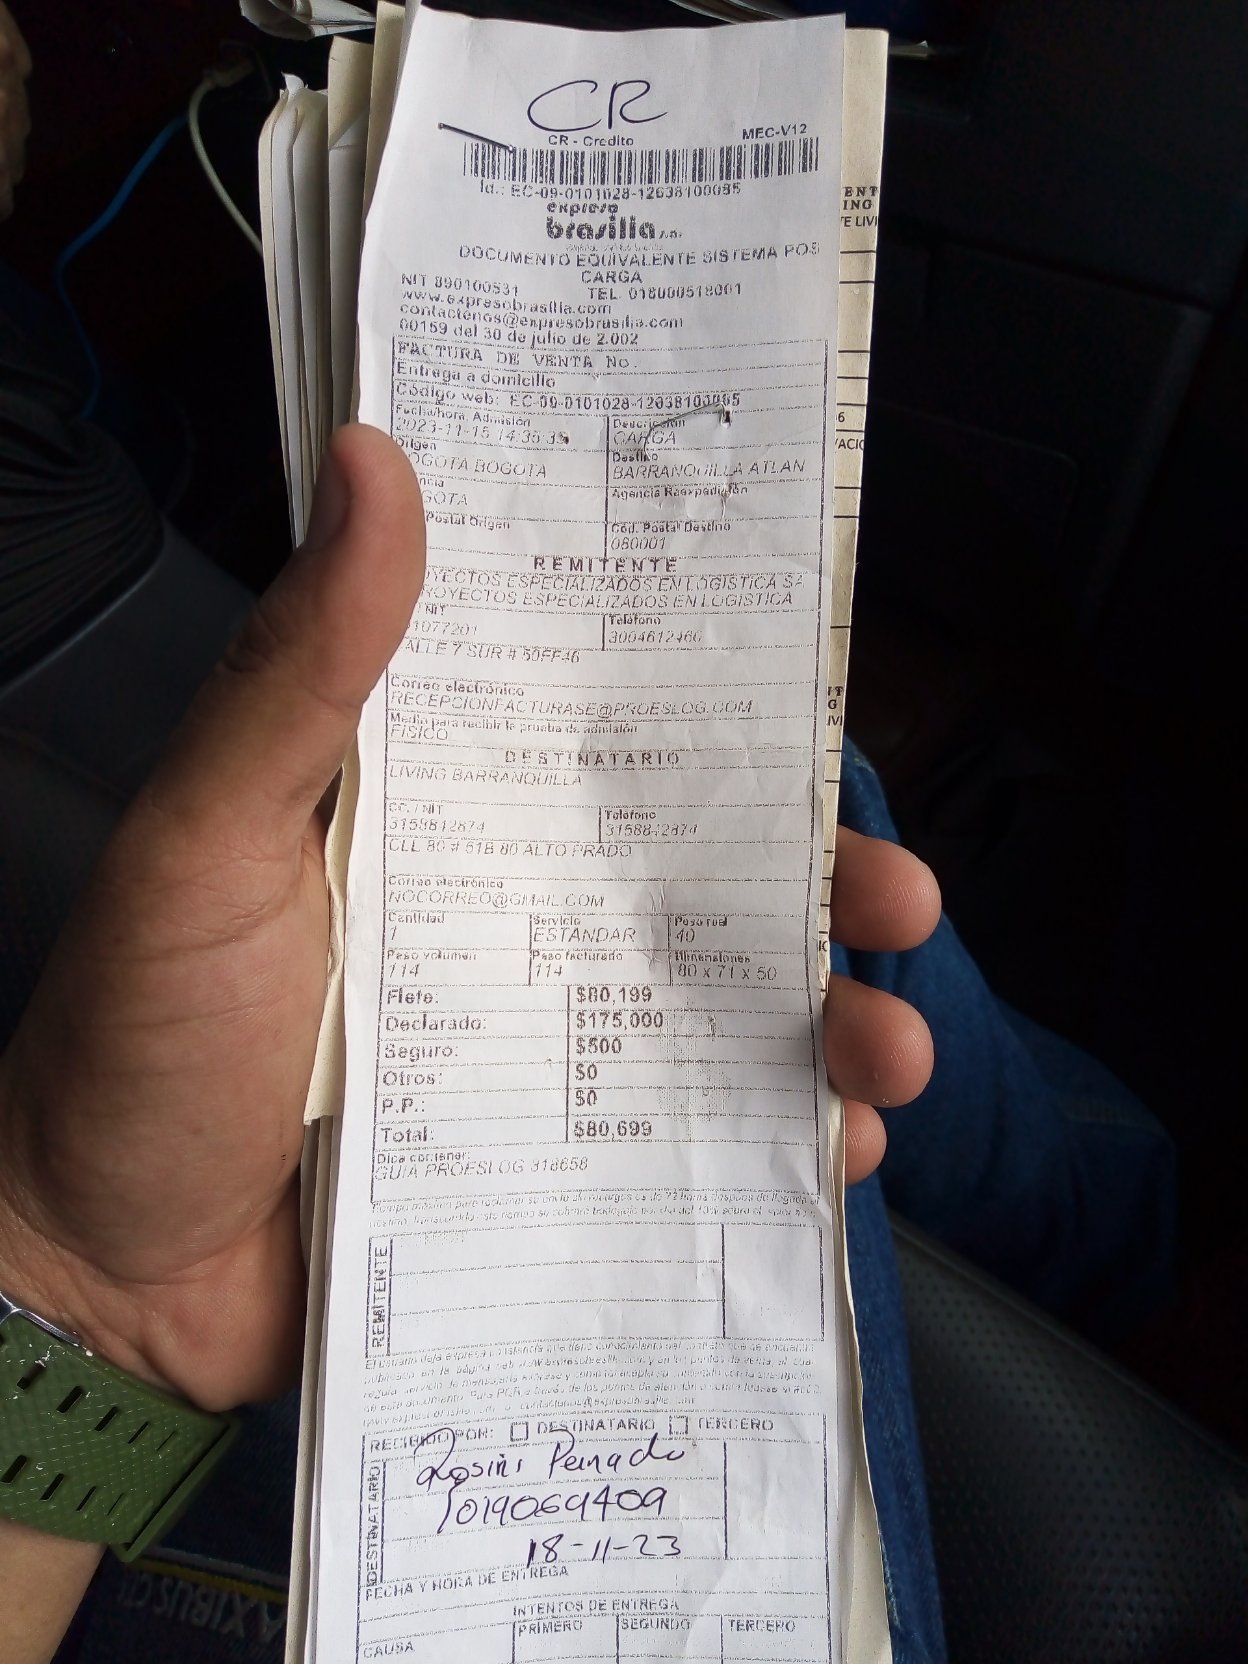 CR
CR - Credito
MEC-V12
Id.: EC-09-0101028-12638100095
expreso
brasilia s.a.
DOCUMENTO EQUIVALENTE SISTEMA POS
CARGA
NIT 890100531 TEL. 018000518001
www.expresobrasilia.com
contactenos@expresobrasilia.com
00159 del 30 de julio de 2.002
FACTURA DE VENTA No.
Entrega a domicilio
Código web: EC-09-0101028-12638100095
Fecha/hora Admisión Descripción
2023-11-15 14:35:35 CARGA
Origen Destino
OGOTA BOGOTA BARRANQUILLA ATLAN
ncia Agencia Reexpedición
GOTA
Postal Origen Cód. Postal Destino
080001
REMITENTE
YECTOS ESPECIALIZADOS EN LOGISTICA SA
ROYECTOS ESPECIALIZADOS EN LOGISTICA
NIT Teléfono
1077201 3004612466
ALLE 7 SUR # 50FF46
Correo electrónico
RECEPCIONFACTURASE@PROESLOG.COM
Medio para recibir la prueba de admisión
FISICO
DESTINATARIO
LIVING BARRANQUILLA
CC. / NIT Teléfono
3158842874 3158842874
CLL 80 # 51B 80 ALTO PRADO
Correo electrónico
NOCORREO@GMAIL.COM
Cantidad Servicio Peso real
1 ESTANDAR 40
Peso volumen Peso facturado Dimensiones
114 114 80 x 71 x 50
Flete: $80,199
Declarado: $175,000
Seguro: $500
Otros: $0
P.P.: $0
Total: $80,699
Dice contener:
GUIA PROESLOG 318658
REMITENTE
RECIBIDO POR: DESTINATARIO TERCERO
DESTINATARIO
Peinado
1019069409
18-11-23
FECHA Y HORA DE ENTREGA
INTENTOS DE ENTREGA
CAUSA PRIMERO SEGUNDO TERCERO